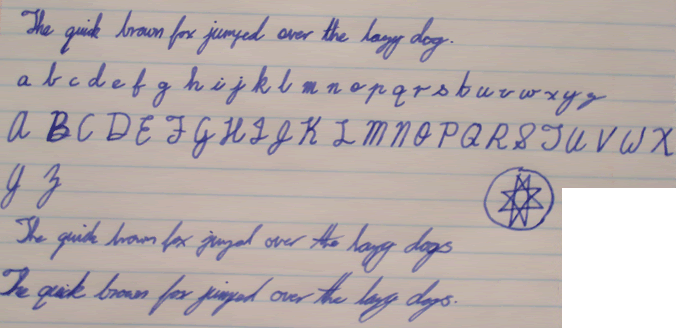 The quick brown fox jumped over the lazy dog.
a b c d e f g h i j k l m n o p q r s t u v w x y z
A B C D E F G H I J K L M N O P Q R S T U V W X
Y Z
The quick brown fox jumped over the lazy dogs
The quick brown fox jumped over the lazy dogs.